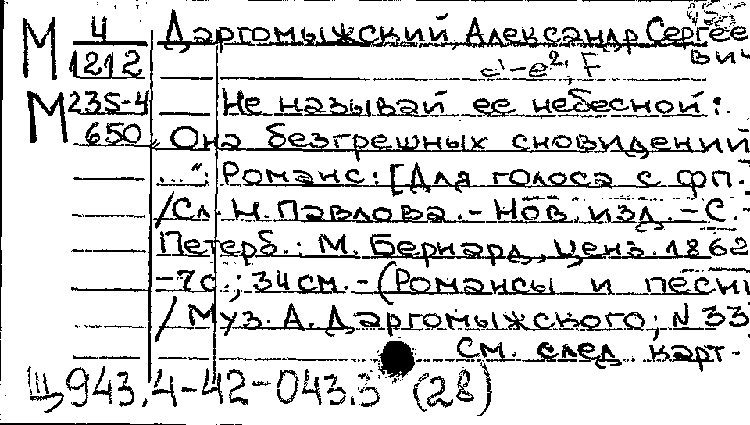 М 4 Даргомыжский, Александр Сергее
1212 вич
c¹-e²; F
М 235-4 Не называй ее небесной:
650 "Она безгрешных сновидений
..."; Романс: [Для голоса с фп.
/Сл. Н. Павлова. - Нов. изд. - С.-
Петерб.: М. Бернард, ценз. 1862
-7с.; 34см. - (Романсы и песни
/ Муз. А. Даргомыжского; N 33
См. след. карт.
Щ943.4-42-043.3 (28)